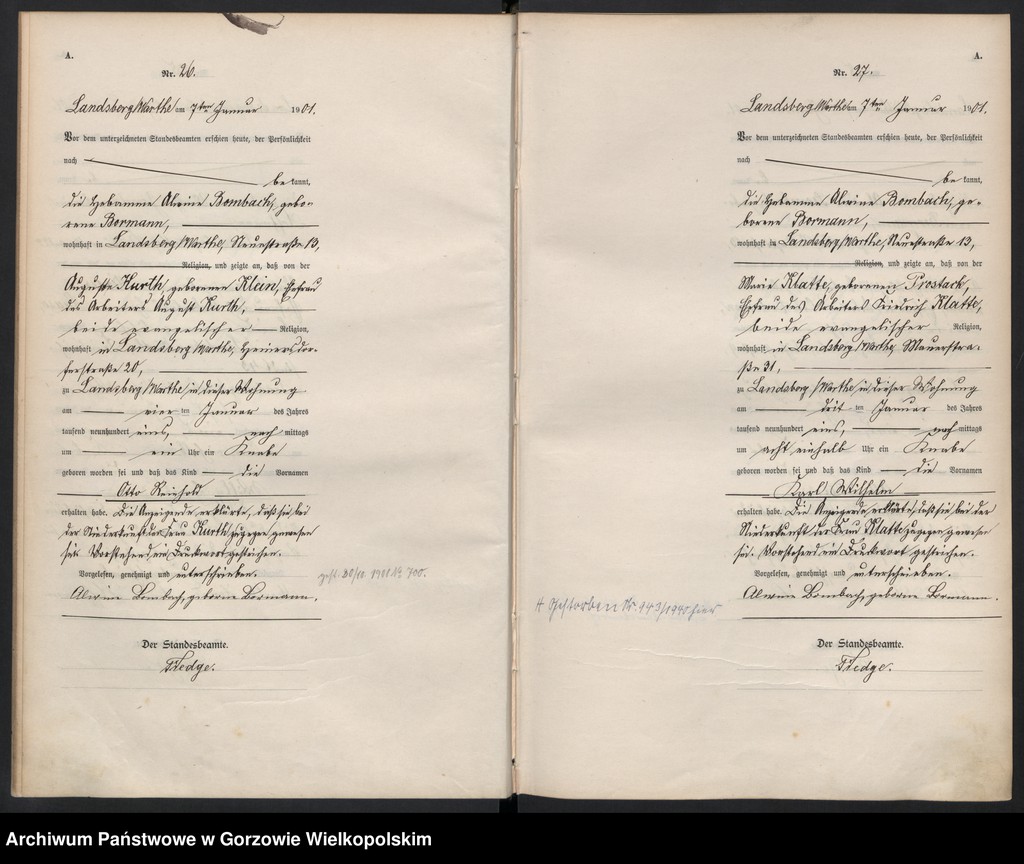 A.
Nr. 26.
Landsberg/Warthe am 7ten Januar 1901.
Vor dem unterzeichneten Standesbeamten erschien heute, der Persönlichkeit
nach
be kannt,
die Hebamme Alwine Bombach, gebo-
rene Bormann,
wohnhaft in Landsberg/Warthe, Neuestraße 13,
Religion, und zeigte an, daß von der
Auguste Kurth, geborenen Klein, Ehefrau
des Arbeiters August Kurth,
beide evangelischer Religion,
wohnhaft in Landsberg/Warthe, Heinersdor-
ferstraße 20,
zu Landsberg/Warthe in dieser Wohnung
am vier ten Januar des Jahres
tausend neunhundert eins, nach mittags
um ein Uhr ein Knabe
geboren worden sei und daß das Kind die Vornamen
Otto Reinhold
erhalten habe. Die Anzeigende erklärte, daß sie bei
der Niederkunft der Frau Kurth zugegen gewesen
sei. Vorstehend ein Druckwort gestrichen.
Vorgelesen, genehmigt und unterschrieben.
Alwine Bombach, geborne Bormann.
Der Standesbeamte.
Tiedge.
gest. 1901 Nr. 700.
A.
Nr. 27.
Landsberg/Warthe am 7ten Januar 1901.
Vor dem unterzeichneten Standesbeamten erschien heute, der Persönlichkeit
nach
be kannt,
die Hebamme Alwine Bombach, ge-
borene Bormann,
wohnhaft in Landsberg/Warthe, Neuestraße 13,
Religion, und zeigte an, daß von der
Marie Klatte, geborenen Prostack,
Ehefrau des Arbeiters Friedrich Klatte,
beide evangelischer Religion,
wohnhaft in Landsberg/Warthe Mauerstra-
ße 31,
zu Landsberg/Warthe in dieser Wohnung
am drit ten Januar des Jahres
tausend neunhundert eins, nach mittags
um acht einhalb Uhr ein Knabe
geboren worden sei und daß das Kind die Vornamen
Karl Wilhelm
erhalten habe. Die Anzeigende erklärte, daß sie bei der
Niederkunft der Frau Klatte zugegen gewesen
sei. Vorstehend ein Druckwort gestrichen.
Vorgelesen, genehmigt und unterschrieben.
Alwine Bombach, geborne Bormann.
Der Standesbeamte.
Tiedge.
Gestorben Nr. 143/1940 hier
Archiwum Państwowe w Gorzowie Wielkopolskim